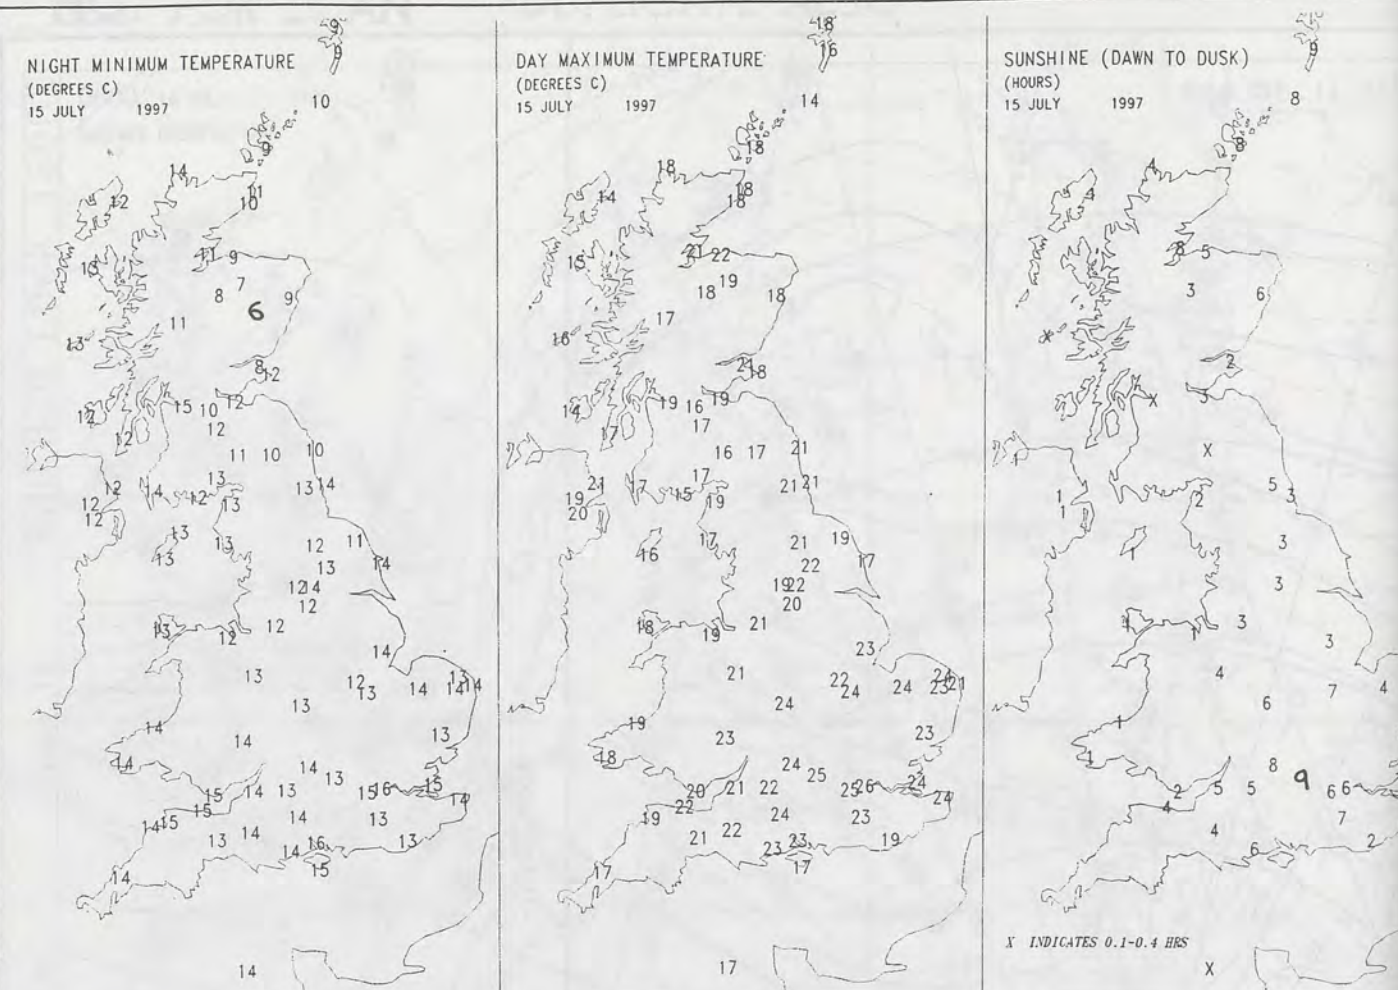 NIGHT MINIMUM TEMPERATURE
(DEGREES C)
15 JULY 1997
9
9
10
9
14
11
10
12
11 9
13
7
8
9
6
11
13
8
12
15 10 12
12
12
12
11 10 10
13
14 12 13 14
12
12 13
12
13
13 13
12 11
14
13
12 14
12
13 12 12
14
13
12 13 14 14 13 14
13
14 14 13
14
14 13
15 14 13 15 16 15
14
14 15 15 14 13
13 14 14 16 13
15
14
14
DAY MAXIMUM TEMPERATURE
(DEGREES C)
15 JULY 1997
18
16
14
18
18
18
18
14
21 22
15
19
18 18
17
16
21
18
14 19 16 19
17 17
16 17 21
17
21 17 15 21 21
19 19
20
16 17 21 19
22 17
19 22
20
18 19 21
23
21
22 24 24 24 23 21
24
19 23 23
18 24
25
20 21 22 25 26 24
24
19 22 24 23
21 22 23 23 19
17 17
17
SUNSHINE (DAWN TO DUSK)
(HOURS)
15 JULY 1997
9
8
8
4
4
8 5
3 6
X
2
X 3
X
1
5
1 2 3
1
1 3
3
1 1 3
3
4
7 4
6
1
1 8
9
2 5 5 6 6
4 7
4 6 2
X INDICATES 0.1-0.4 HRS
X